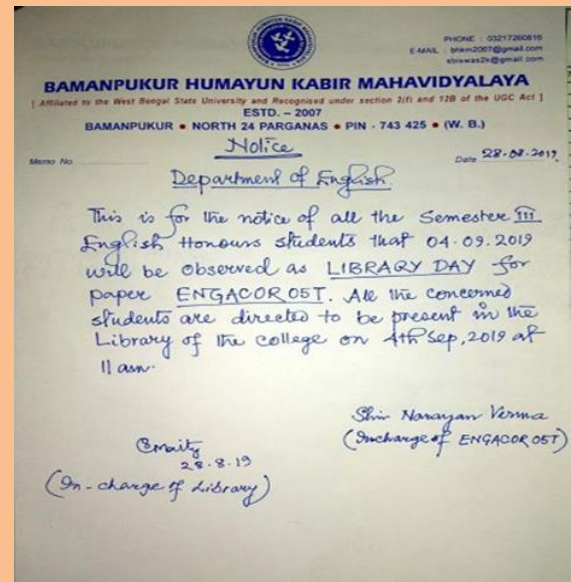 PHONE : 03217260816
E-MAIL : bhkm2007@gmail.com
sbiswas2k@gmail.com
BAMANPUKUR HUMAYUN KABIR MAHAVIDYALAYA
[ Affiliated to the West Bengal State University and Recognised under section 2(f) and 12B of the UGC Act ]
ESTD. – 2007
BAMANPUKUR • NORTH 24 PARGANAS • PIN - 743 425 • (W. B.)
Notice
Memo No
Date 28-08-2019
Department of English.
This is for the notice of all the Semester III
English Honours students that 04.09.2019
will be observed as LIBRARY DAY for
paper ENGACOR05T. All the concerned
students are directed to be present in the
Library of the college on 4th Sep, 2019 at
11 am.
Shiv Narayan Verma
(Incharge of ENGACOR05T)
Emaity
28.8.19
(In-charge of Library)